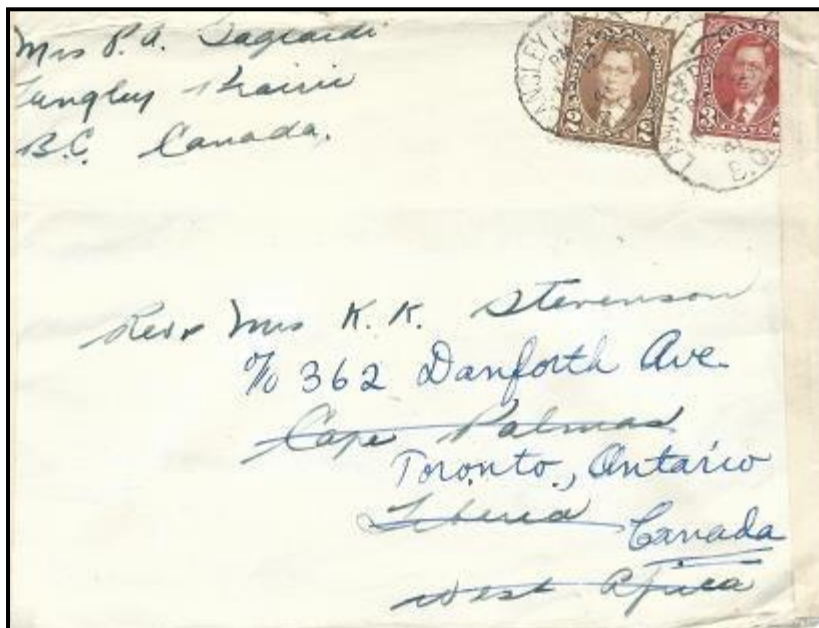 Mrs P. A. Gagliardi
Langley Prairie
B.C. Canada.
LANGLEY
PM
2 2
3
Rev & Mrs K. K. Stevenson
c/o 362 Danforth Ave.
Cape Palmas
Toronto, Ontario
Liberia
Canada
West Africa